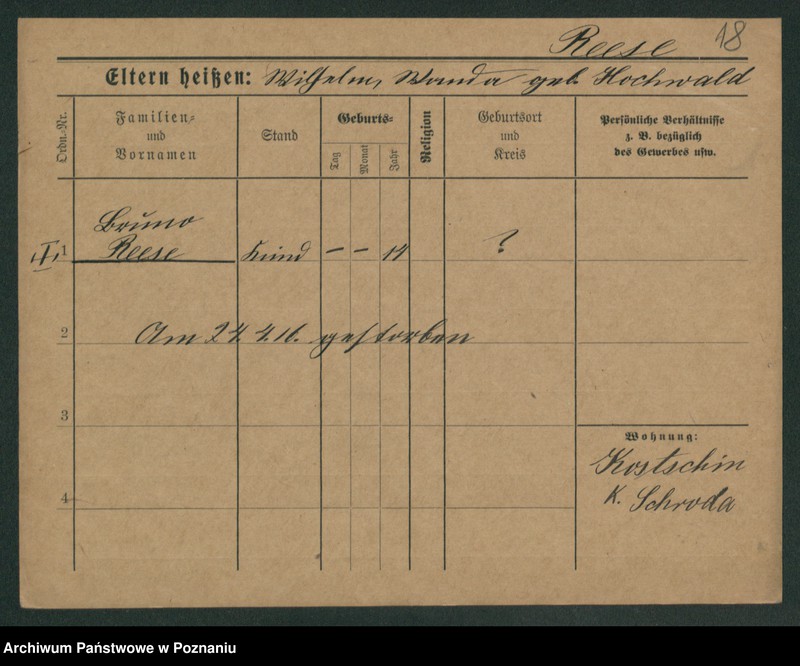 Reese 18
Eltern heißen: Wilhelm, Wanda geb. Hochwald
Ordn.-Nr.
Familien-
und
Vornamen
Stand
Geburts-
Tag
Monat
Jahr
Religion
Geburtsort
und
Kreis
Persönliche Verhältnisse
z. B. bezüglich
des Gewerbes usw.
Bruno
1 Reese Kind — — 14 ?
2 Am 24.4.16. gestorben
3
Wohnung:
Kostschin
4 K. Schroda
Archiwum Państwowe w Poznaniu